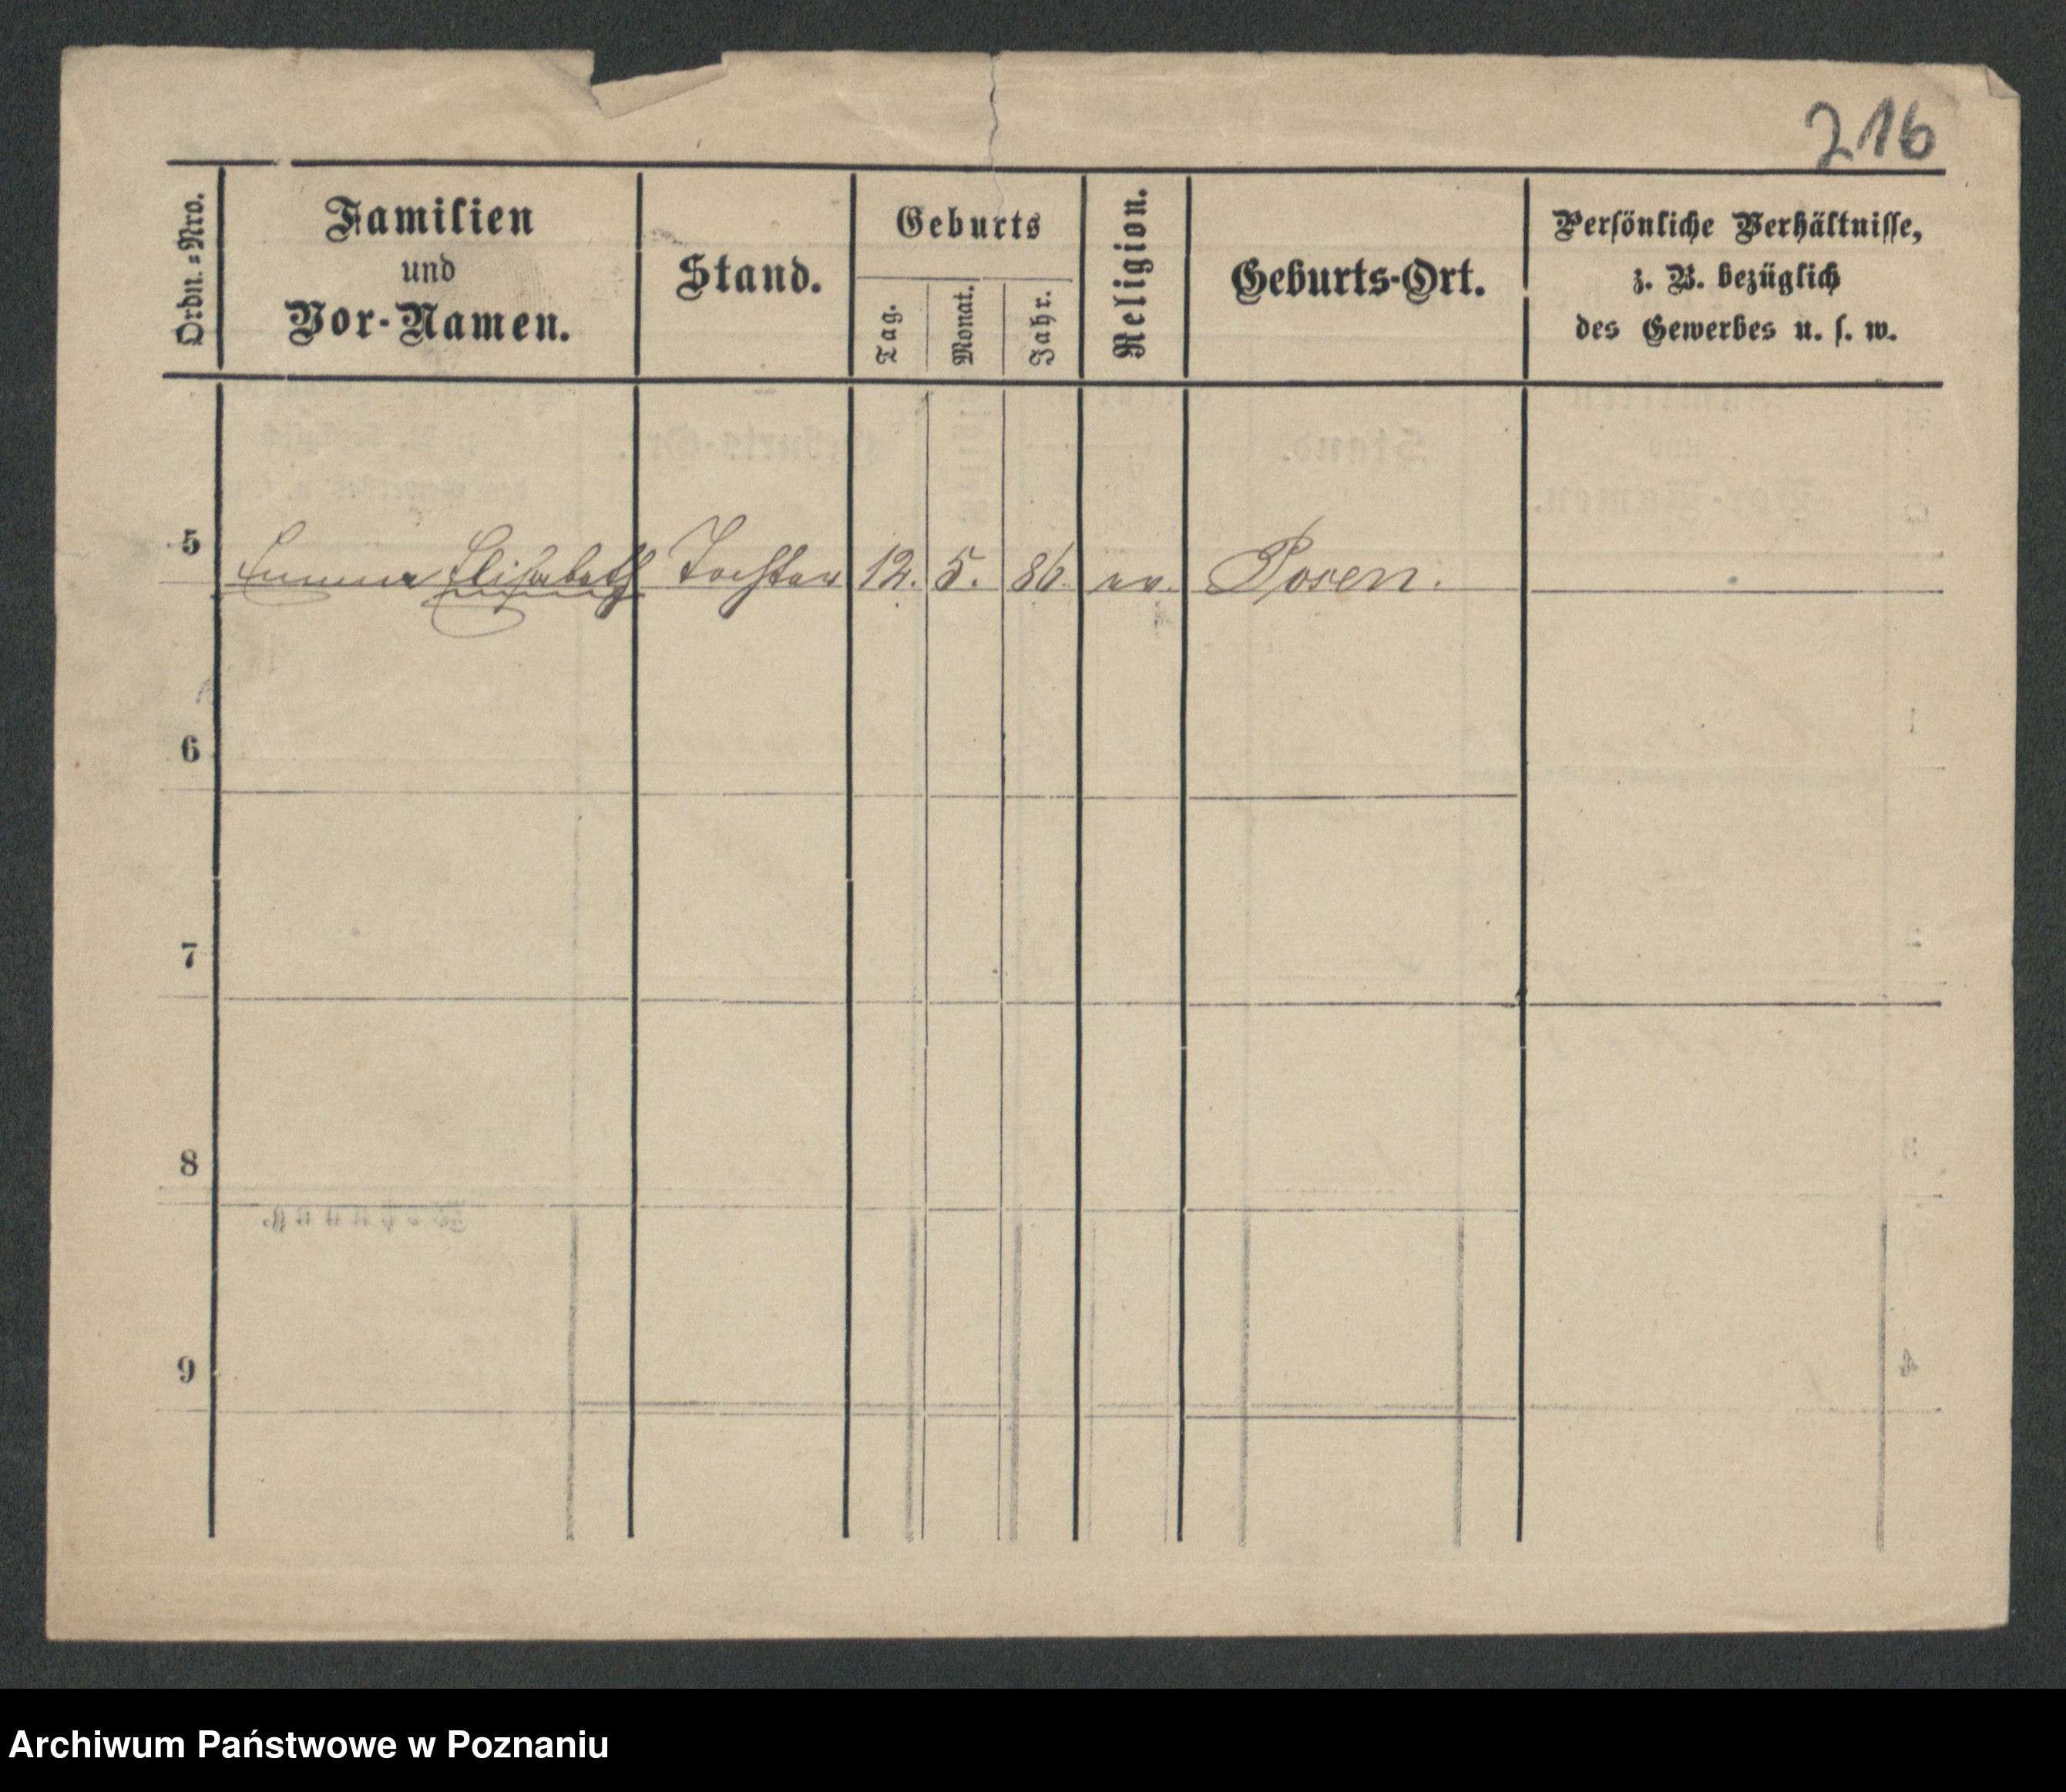 216
Ordn.-Nro.
Familien
und
Vor-Namen.
Stand.
Geburts
Tag.
Monat.
Jahr.
Religion.
Geburts-Ort.
Persönliche Verhältnisse,
z. B. bezüglich
des Gewerbes u. s. w.
5 Emma Elisabeth Tochter 12. 5. 86. ev. Posen.
6
7
8
9
Archiwum Państwowe w Poznaniu